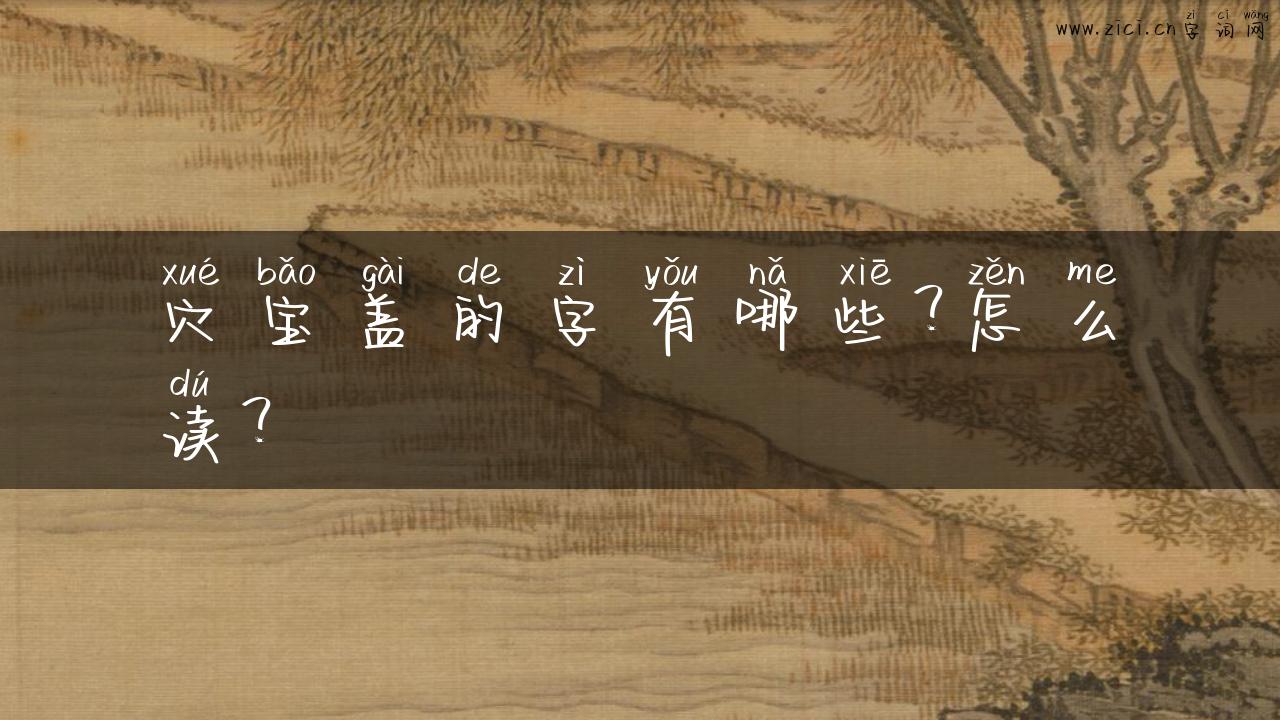 zì cí wǎng
www.zici.cn字词网
xué bǎo gài de zì yǒu nǎ xiē zěn me
穴宝盖的字有哪些？怎么
dú
读？